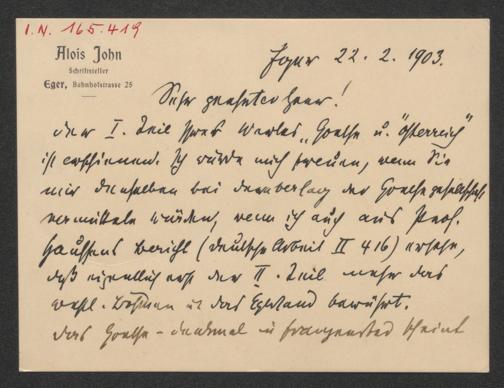 I.N. 165.419
Alois John
Schriftsteller
Eger, Bahnhofstrasse 25
Eger 22. 2. 1903.
Sehr geehrter Herr!
der I. Teil Ihres Werkes „Goethe u. Österreich"
ist erschienen. Ich würde mich freuen, wenn Sie
mir denselben bei dem Verlag der Goethegesellschaft
vermitteln würden, wenn ich auch aus Prof.
Hauffens Bericht (deutsche Arbeit II 416) ersehe,
daß eigentlich erst der II. Teil mehr das
westl. Böhmen u. das Egerland berührt.
das Goethe-denkmal in Franzensbad scheint